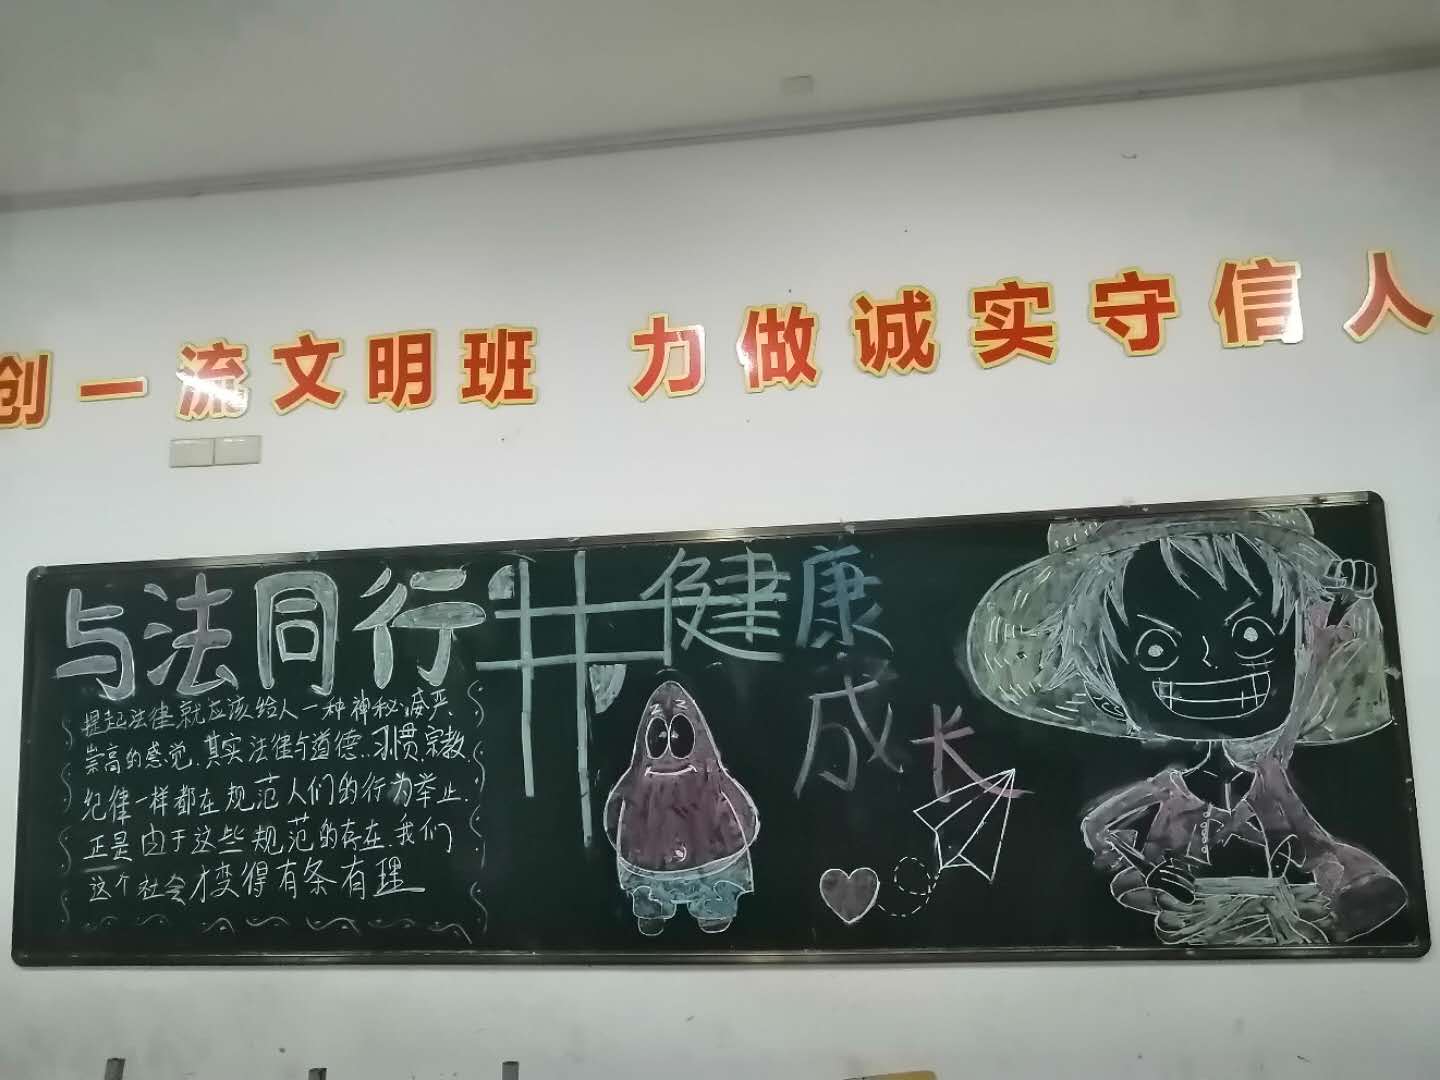 创一流文明班 力做诚实守信人
与法同行 健康
成长
提起法律就应该给人一种神秘、庄严、
崇高的感觉.其实法律与道德.习惯.宗教.
纪律一样都在规范人们的行为举止.
正是由于这些规范的存在.我们
这个社会才变得有条有理